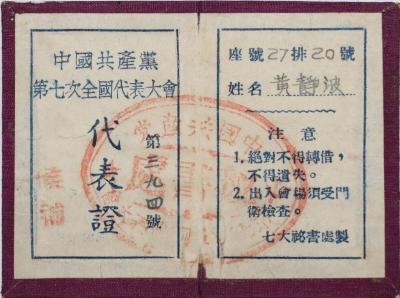 中國共產黨
第七次全國代表大會
代表證
第三九四號
候補
座號27排20號
姓名 黃靜波
注意
1. 絕對不得轉借，
不得遺失。
2. 出入會場須受門
衛檢查。
七大祕書處製